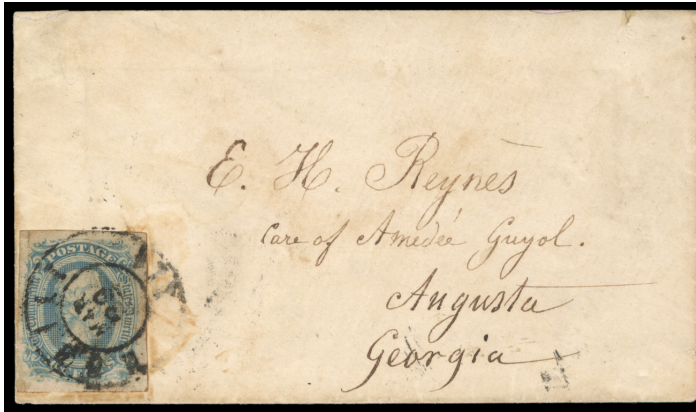 E. H. Reynès
Care of Amedée Guyol.
Augusta
Georgia
POSTAGE
MAR